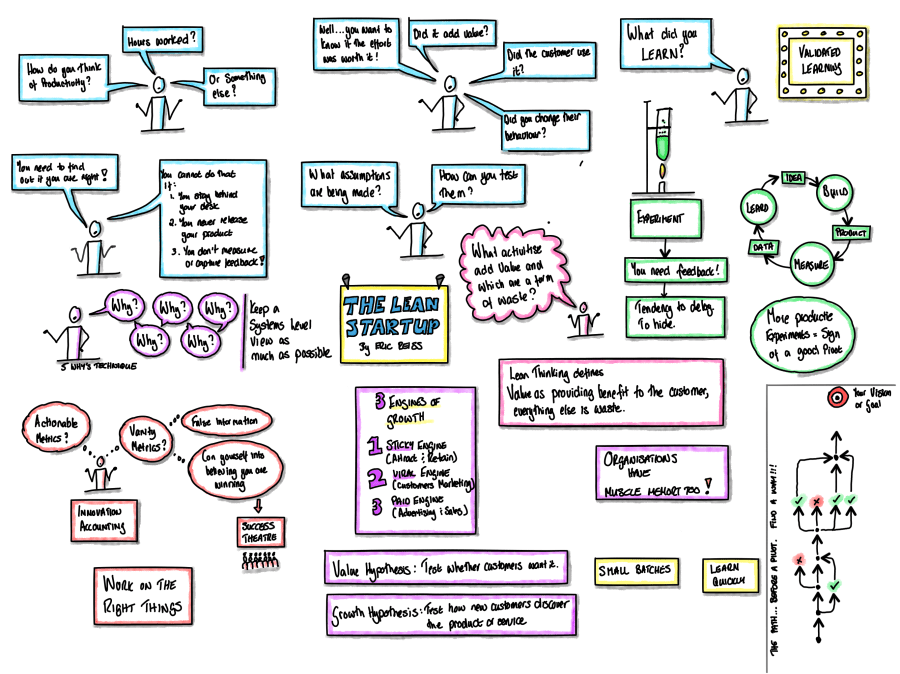 Hours worked?
How do you think
of Productivity?
Or Something
else?
Well...you want to
know if the effort
was worth it!
Did it add value?
Did the customer use
it?
Did you change their
behaviour?
What did you
LEARN?
VALIDATED
LEARNING
You need to find
out if you are right!
You cannot do that
if:
1. You stay behind
your desk
2. You never release
your product
3. You don't measure
or capture feedback!
What assumptions
are being made?
How can you test
them?
EXPERIMENT
You need feedback!
Tendency to delay.
To hide.
IDEA
BUILD
PRODUCT
MEASURE
DATA
LEARN
Why?
Why?
Why?
Why?
Why?
5 WHY'S TECHNIQUE
Keep a
Systems Level
View as
much as possible
THE LEAN
STARTUP
By ERIC REISS
What activitise
add Value and
which are a form
of waste?
More producte
Experiments = Sign
of a good Pivot
Lean Thinking defines
Value as providing benefit to the customer,
everything else is waste.
Actionable
Metrics?
Vanity
Metrics?
False Information
Con yourself into
believing you are
winning
INNOVATION
ACCOUNTING
SUCCESS
THEATRE
WORK ON THE
RIGHT THINGS
3 ENGINES OF
GROWTH
1 STICKY ENGINE
(Attract & Retain)
2 VIRAL ENGINE
(Customers Marketing)
3 PAID ENGINE
(Advertising & Sales)
ORGANISATIONS
HAVE
MUSCLE MEMORY TOO!
Value Hypothesis: Test whether customers want it.
Growth Hypothesis: Test how new customers discover
the product or service
SMALL BATCHES
LEARN
QUICKLY
Your Vision
or Goal
THE PATH... BEFORE A PIVOT. FIND A WAY!!!